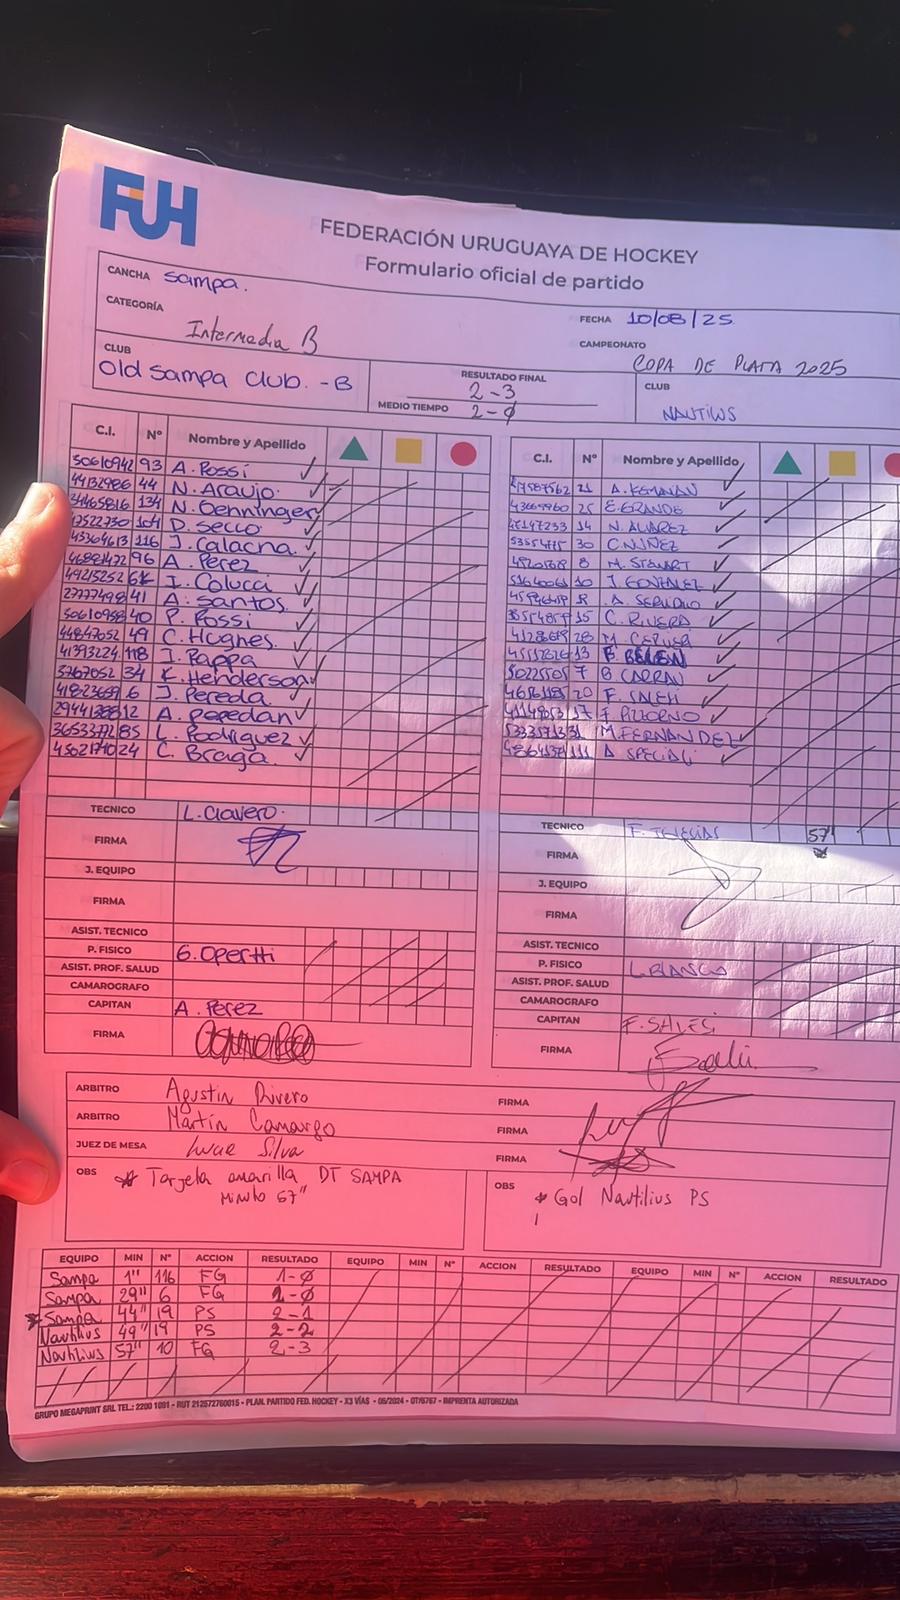 FUH
FEDERACIÓN URUGUAYA DE HOCKEY
Formulario oficial de partido
CANCHA Sampa.
FECHA 10/08/25
CATEGORÍA Intermedia B
CAMPEONATO COPA DE PLATA 2025
CLUB Old Sampa Club. -B
RESULTADO FINAL 2-3
MEDIO TIEMPO 2-0
CLUB NAUTILUS
C.I. Nº Nombre y Apellido
50610942 93 A. Rossi
44132986 44 N. Araujo
34465816 134 N. Oenninger
47522730 104 D. Secco
45364613 116 J. Calacna
46881472 96 A. Perez
49215252 I. Coluca
27777498 41 A. Santos.
50610958 40 P. Rossi
44847052 49 C. Hughes
41393224 118 J. Pappa
3767052 34 K. Henderson
41823659 6 J. Pereda
29441388 12 A. Papedan
36533772 85 L. Rodriguez
45021740 24 C. Braga.
C.I. Nº Nombre y Apellido
47587562 21 A.
43669960 25 E. GRANDE
14 N. ALVAREZ
30 C. NUÑEZ
8 M. STEWART
10 J. GONZALEZ
A. SERVIÑO
15 C. RIVERA
28 M.
13 BELEN
50225505 7 B CARRAU
20 F. SALEH
17 F. PIZZORNO
31 M. FERNANDEZ
111 A SPECIALI
TECNICO L. Clavero.
FIRMA
J. EQUIPO
FIRMA
ASIST. TECNICO
P. FISICO G. Opertti
ASIST. PROF. SALUD
CAMAROGRAFO
CAPITAN A. Perez
FIRMA
TECNICO F. IGLESIAS 57"
FIRMA
J. EQUIPO
FIRMA
ASIST. TECNICO
P. FISICO L. BIANCO
ASIST. PROF. SALUD
CAMAROGRAFO
CAPITAN F. SALES
FIRMA
ARBITRO Agustin Rivero FIRMA
ARBITRO Martín Camargo FIRMA
JUEZ DE MESA Lucar Silva FIRMA
OBS * Tarjeta amarilla DT SAMPA
Minuto 57"
OBS * Gol Nautilius PS
EQUIPO MIN Nº ACCION RESULTADO EQUIPO MIN Nº ACCION RESULTADO EQUIPO MIN Nº ACCION RESULTADO
Sampa 1" 116 FG 1-0
Sampa 29" 6 FG 2-0
* Sampa 44" 19 PS 2-1
Nautilius 49" 19 PS 2-2
Nautilius 57" 10 FG 2-3
GRUPO MEGAPRINT SRL TEL.: 2200 1091 - RUT 212572760015 - PLAN. PARTIDO FED. HOCKEY - X3 VÍAS - 06/2024 - OT/6767 - IMPRENTA AUTORIZADA